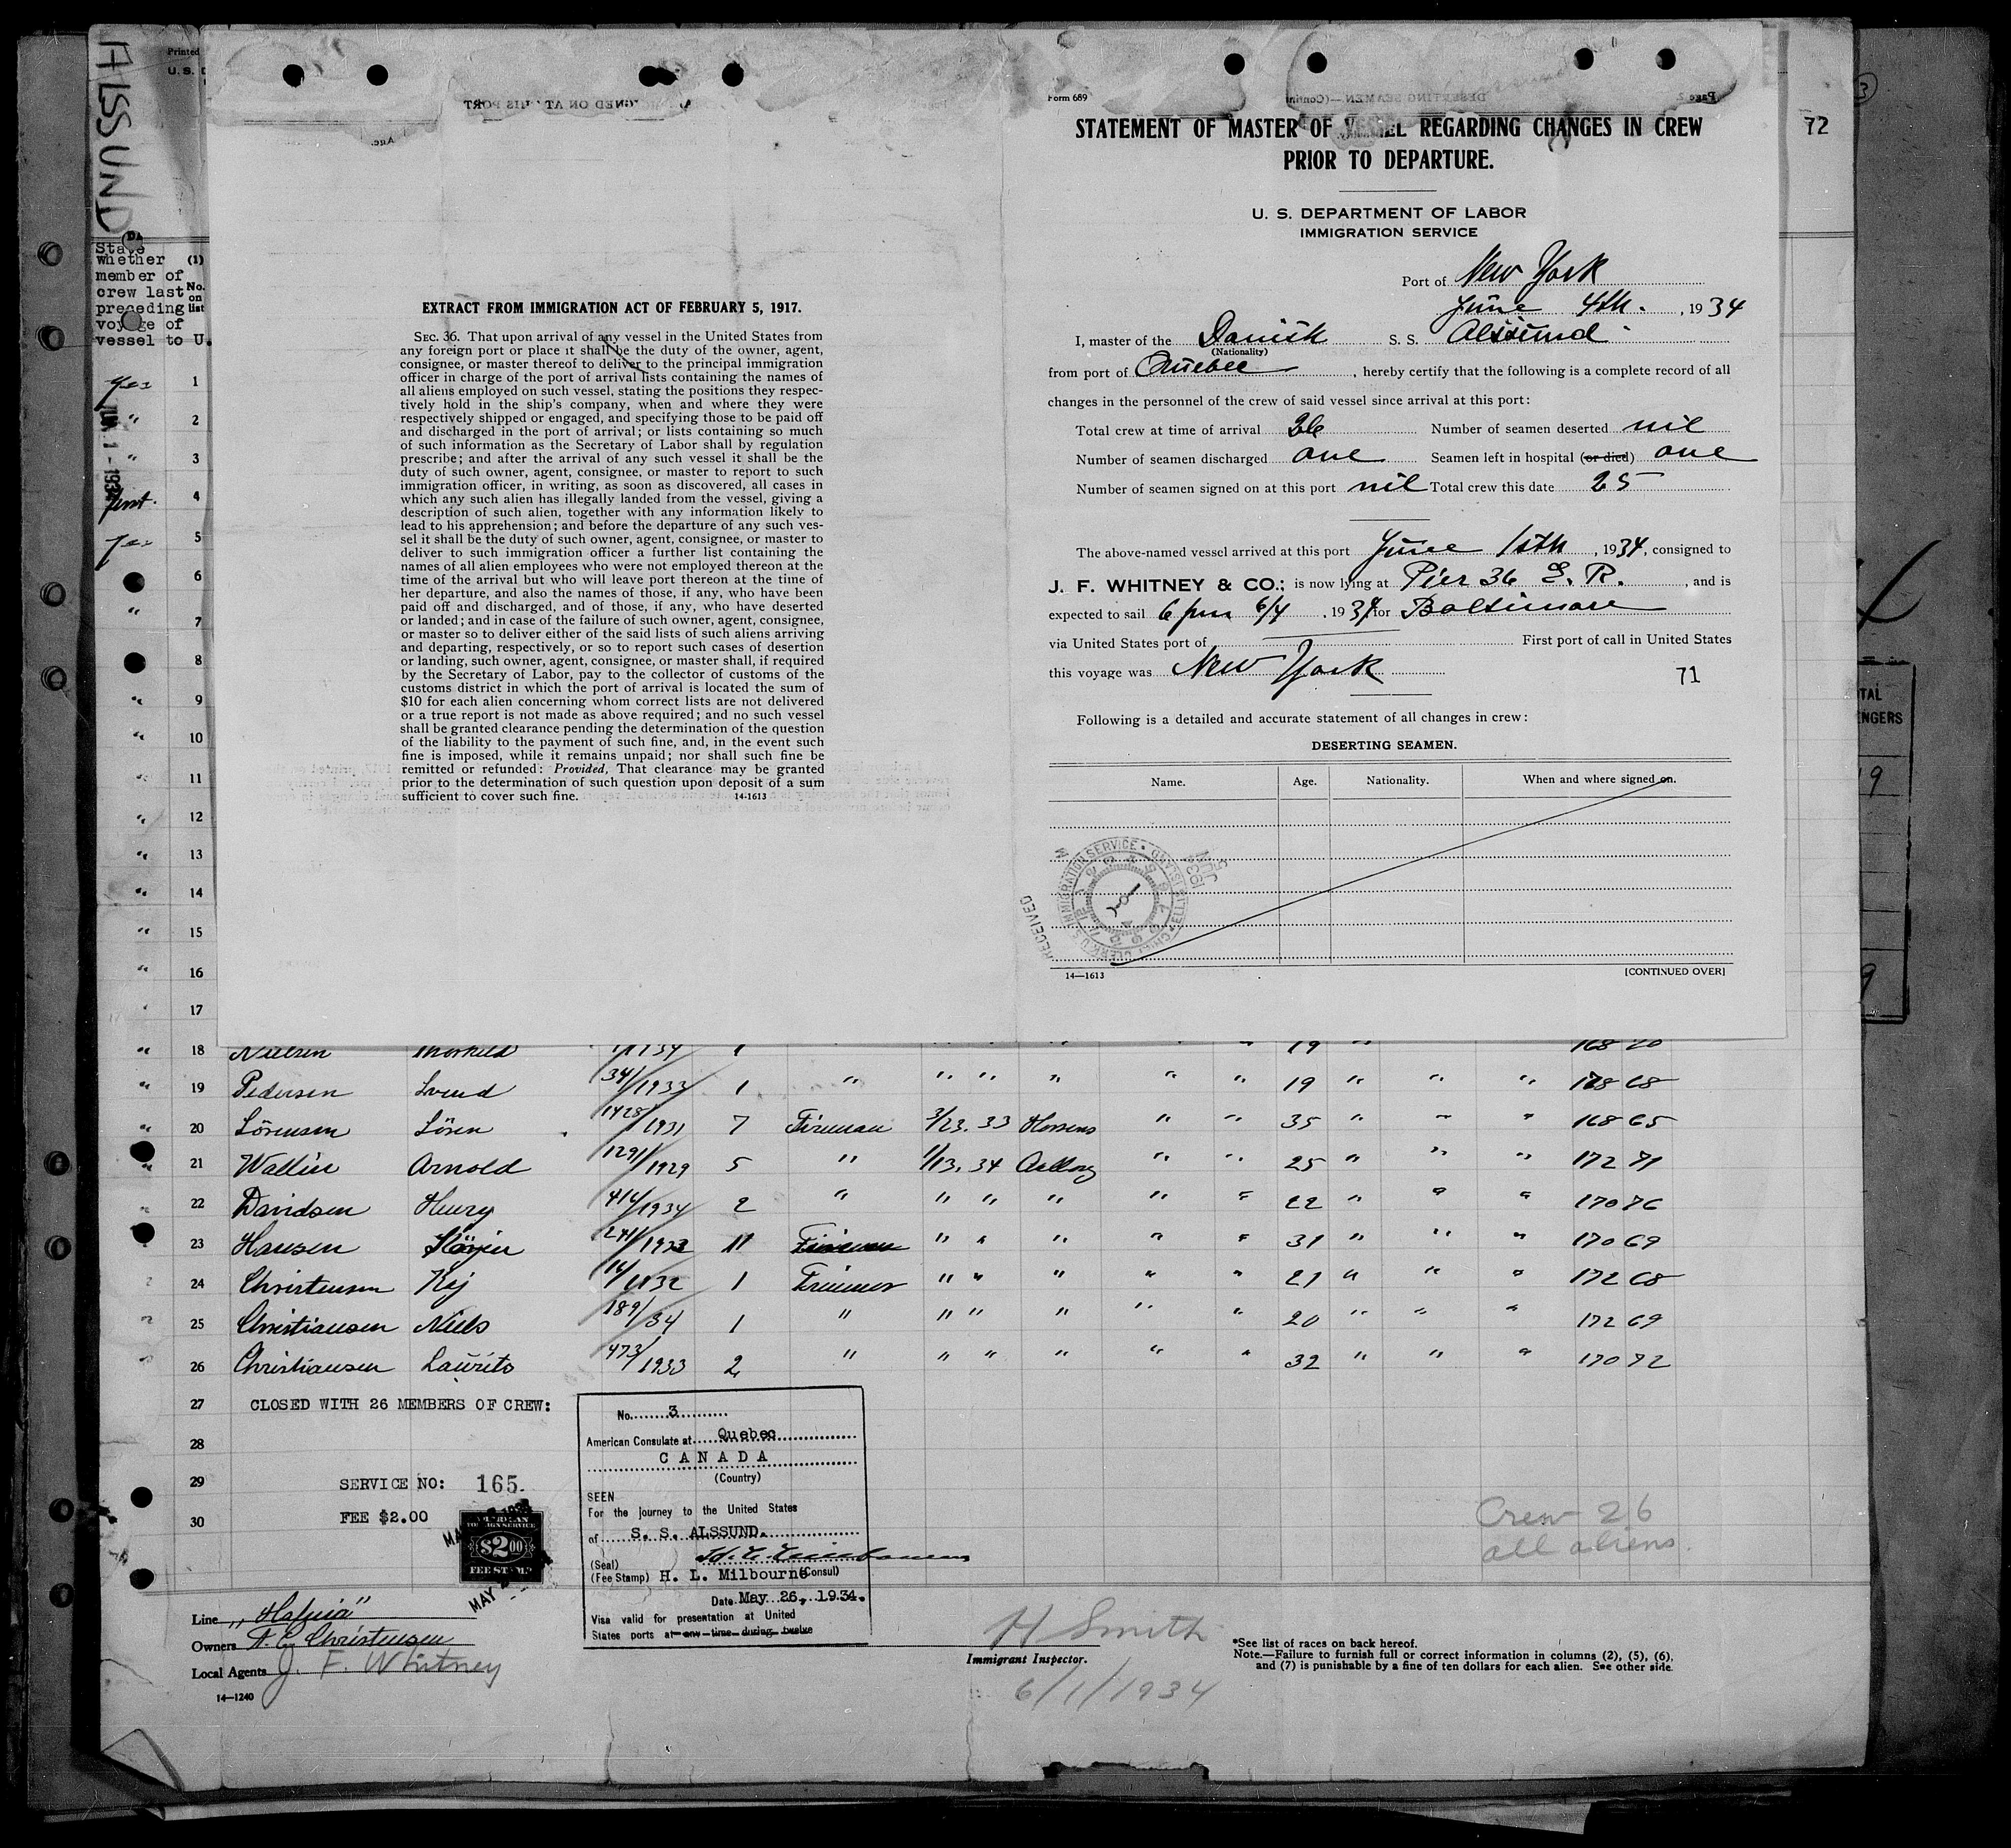 ALSSUND
Printed
U. S. D
State
whether (1)
member of
crew last No.
preceding on
voyage of list
vessel to U.
EXTRACT FROM IMMIGRATION ACT OF FEBRUARY 5, 1917.
SEC. 36. That upon arrival of any vessel in the United States from
any foreign port or place it shall be the duty of the owner, agent,
consignee, or master thereof to deliver to the principal immigration
officer in charge of the port of arrival lists containing the names of
all aliens employed on such vessel, stating the positions they respec-
tively hold in the ship's company, when and where they were
respectively shipped or engaged, and specifying those to be paid off
and discharged in the port of arrival; or lists containing so much
of such information as the Secretary of Labor shall by regulation
prescribe; and after the arrival of any such vessel it shall be the
duty of such owner, agent, consignee, or master to report to such
immigration officer, in writing, as soon as discovered, all cases in
which any such alien has illegally landed from the vessel, giving a
description of such alien, together with any information likely to
lead to his apprehension; and before the departure of any such ves-
sel it shall be the duty of such owner, agent, consignee, or master to
deliver to such immigration officer a further list containing the
names of all alien employees who were not employed thereon at the
time of the arrival but who will leave port thereon at the time of
her departure, and also the names of those, if any, who have been
paid off and discharged, and of those, if any, who have deserted
or landed; and in case of the failure of such owner, agent, consignee,
or master so to deliver either of the said lists of such aliens arriving
and departing, respectively, or so to report such cases of desertion
or landing, such owner, agent, consignee, or master shall, if required
by the Secretary of Labor, pay to the collector of customs of the
customs district in which the port of arrival is located the sum of
$10 for each alien concerning whom correct lists are not delivered
or a true report is not made as above required; and no such vessel
shall be granted clearance pending the determination of the question
of the liability to the payment of such fine, and, in the event such
fine is imposed, while it remains unpaid; nor shall such fine be
remitted or refunded: Provided, That clearance may be granted
prior to the determination of such question upon deposit of a sum
sufficient to cover such fine. 14-1613
Form 689
72
STATEMENT OF MASTER OF VESSEL REGARDING CHANGES IN CREW
PRIOR TO DEPARTURE.
U. S. DEPARTMENT OF LABOR
IMMIGRATION SERVICE
Port of New York
June 4th. , 1934
I, master of the Danish S. S. Alssund
(Nationality)
from port of Quebec , hereby certify that the following is a complete record of all
changes in the personnel of the crew of said vessel since arrival at this port:
Total crew at time of arrival 26 Number of seamen deserted nil
Number of seamen discharged one Seamen left in hospital (or died) one
Number of seamen signed on at this port nil Total crew this date 25
The above-named vessel arrived at this port June 1sth , 1934, consigned to
J. F. WHITNEY & CO.; is now lying at Pier 36 E. R. , and is
expected to sail 6 pm 6/4 , 1934 for Baltimore
via United States port of First port of call in United States
this voyage was New York
71
Following is a detailed and accurate statement of all changes in crew:
DESERTING SEAMEN.
Name. Age. Nationality. When and where signed on.
RECEIVED
JUN 5 1934
14—1613 [CONTINUED OVER]
yes 1
" 2
" 3
first 4
yes 5
6
" 7
8
" 9
" 10
" 11
" 12
" 13
" 14
" 15
" 16
17
" 18 Nielsen Thorkild 1 19 " 168 70
" 19 Pedersen Svend 34/1933 1 " " " " " " 19 " " " 178 68
" 20 Sörensen Sören 1428/1931 7 Fireman 3/23. 33 Horsens " " 35 " " " 168 65
" 21 Wallin Arnold 1291/1929 5 " 1/13. 34 Aalborg " " 25 " " " 172 71
22 Davidsen Henry 414/1934 2 " " " " " " 22 " " " 170 76
23 Hansen 241/1923 11 Fireman " " " " " 31 " " " 170 69
24 Christensen Kej 1 Trimmer " " " " " 21 " " " 172 68
25 Christiansen Niels 189/34 1 " " " " " " 20 " " " 172 69
26 Christiansen Laurits 473/1933 2 " " " " " " 32 " " " 170 72
27 CLOSED WITH 26 MEMBERS OF CREW:
28
29 SERVICE NO: 165
30 FEE $2.00
AMERICAN
FOREIGN SERVICE
$2.00
FEE STAMP
No. 3
American Consulate at Quebec
CANADA
(Country)
SEEN
For the journey to the United States
of S. S. ALSSUND.
(Seal)
(Fee Stamp) H. L. Milbourne (Consul)
Date May 26, 1934.
Visa valid for presentation at United
States ports at any time during twelve
Crew 26
all aliens.
Line "Hafnia"
Owners A. C. Christensen
Local Agents J. F. Whitney
14—1240
H Smith
Immigrant Inspector.
6/1/1934
*See list of races on back hereof.
Note.—Failure to furnish full or correct information in columns (2), (5), (6),
and (7) is punishable by a fine of ten dollars for each alien. See other side.